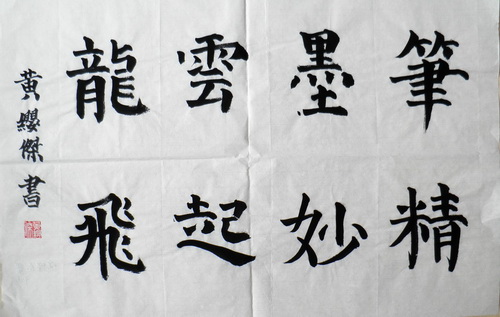 筆精
墨妙
雲起
龍飛
黄纓傑書